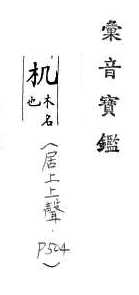 彙音寶鑑
机木名也
(居上上聲.
P504)